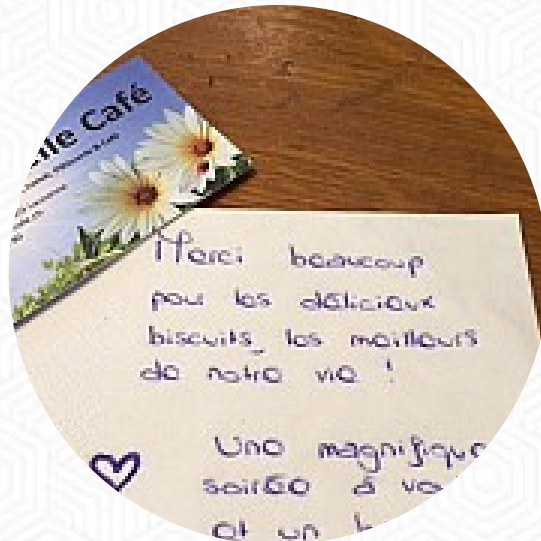 Café
Merci beaucoup
pour les délicieux
biscuits, les meilleurs
de notre vie !
Une magnifique
soirée à
et un